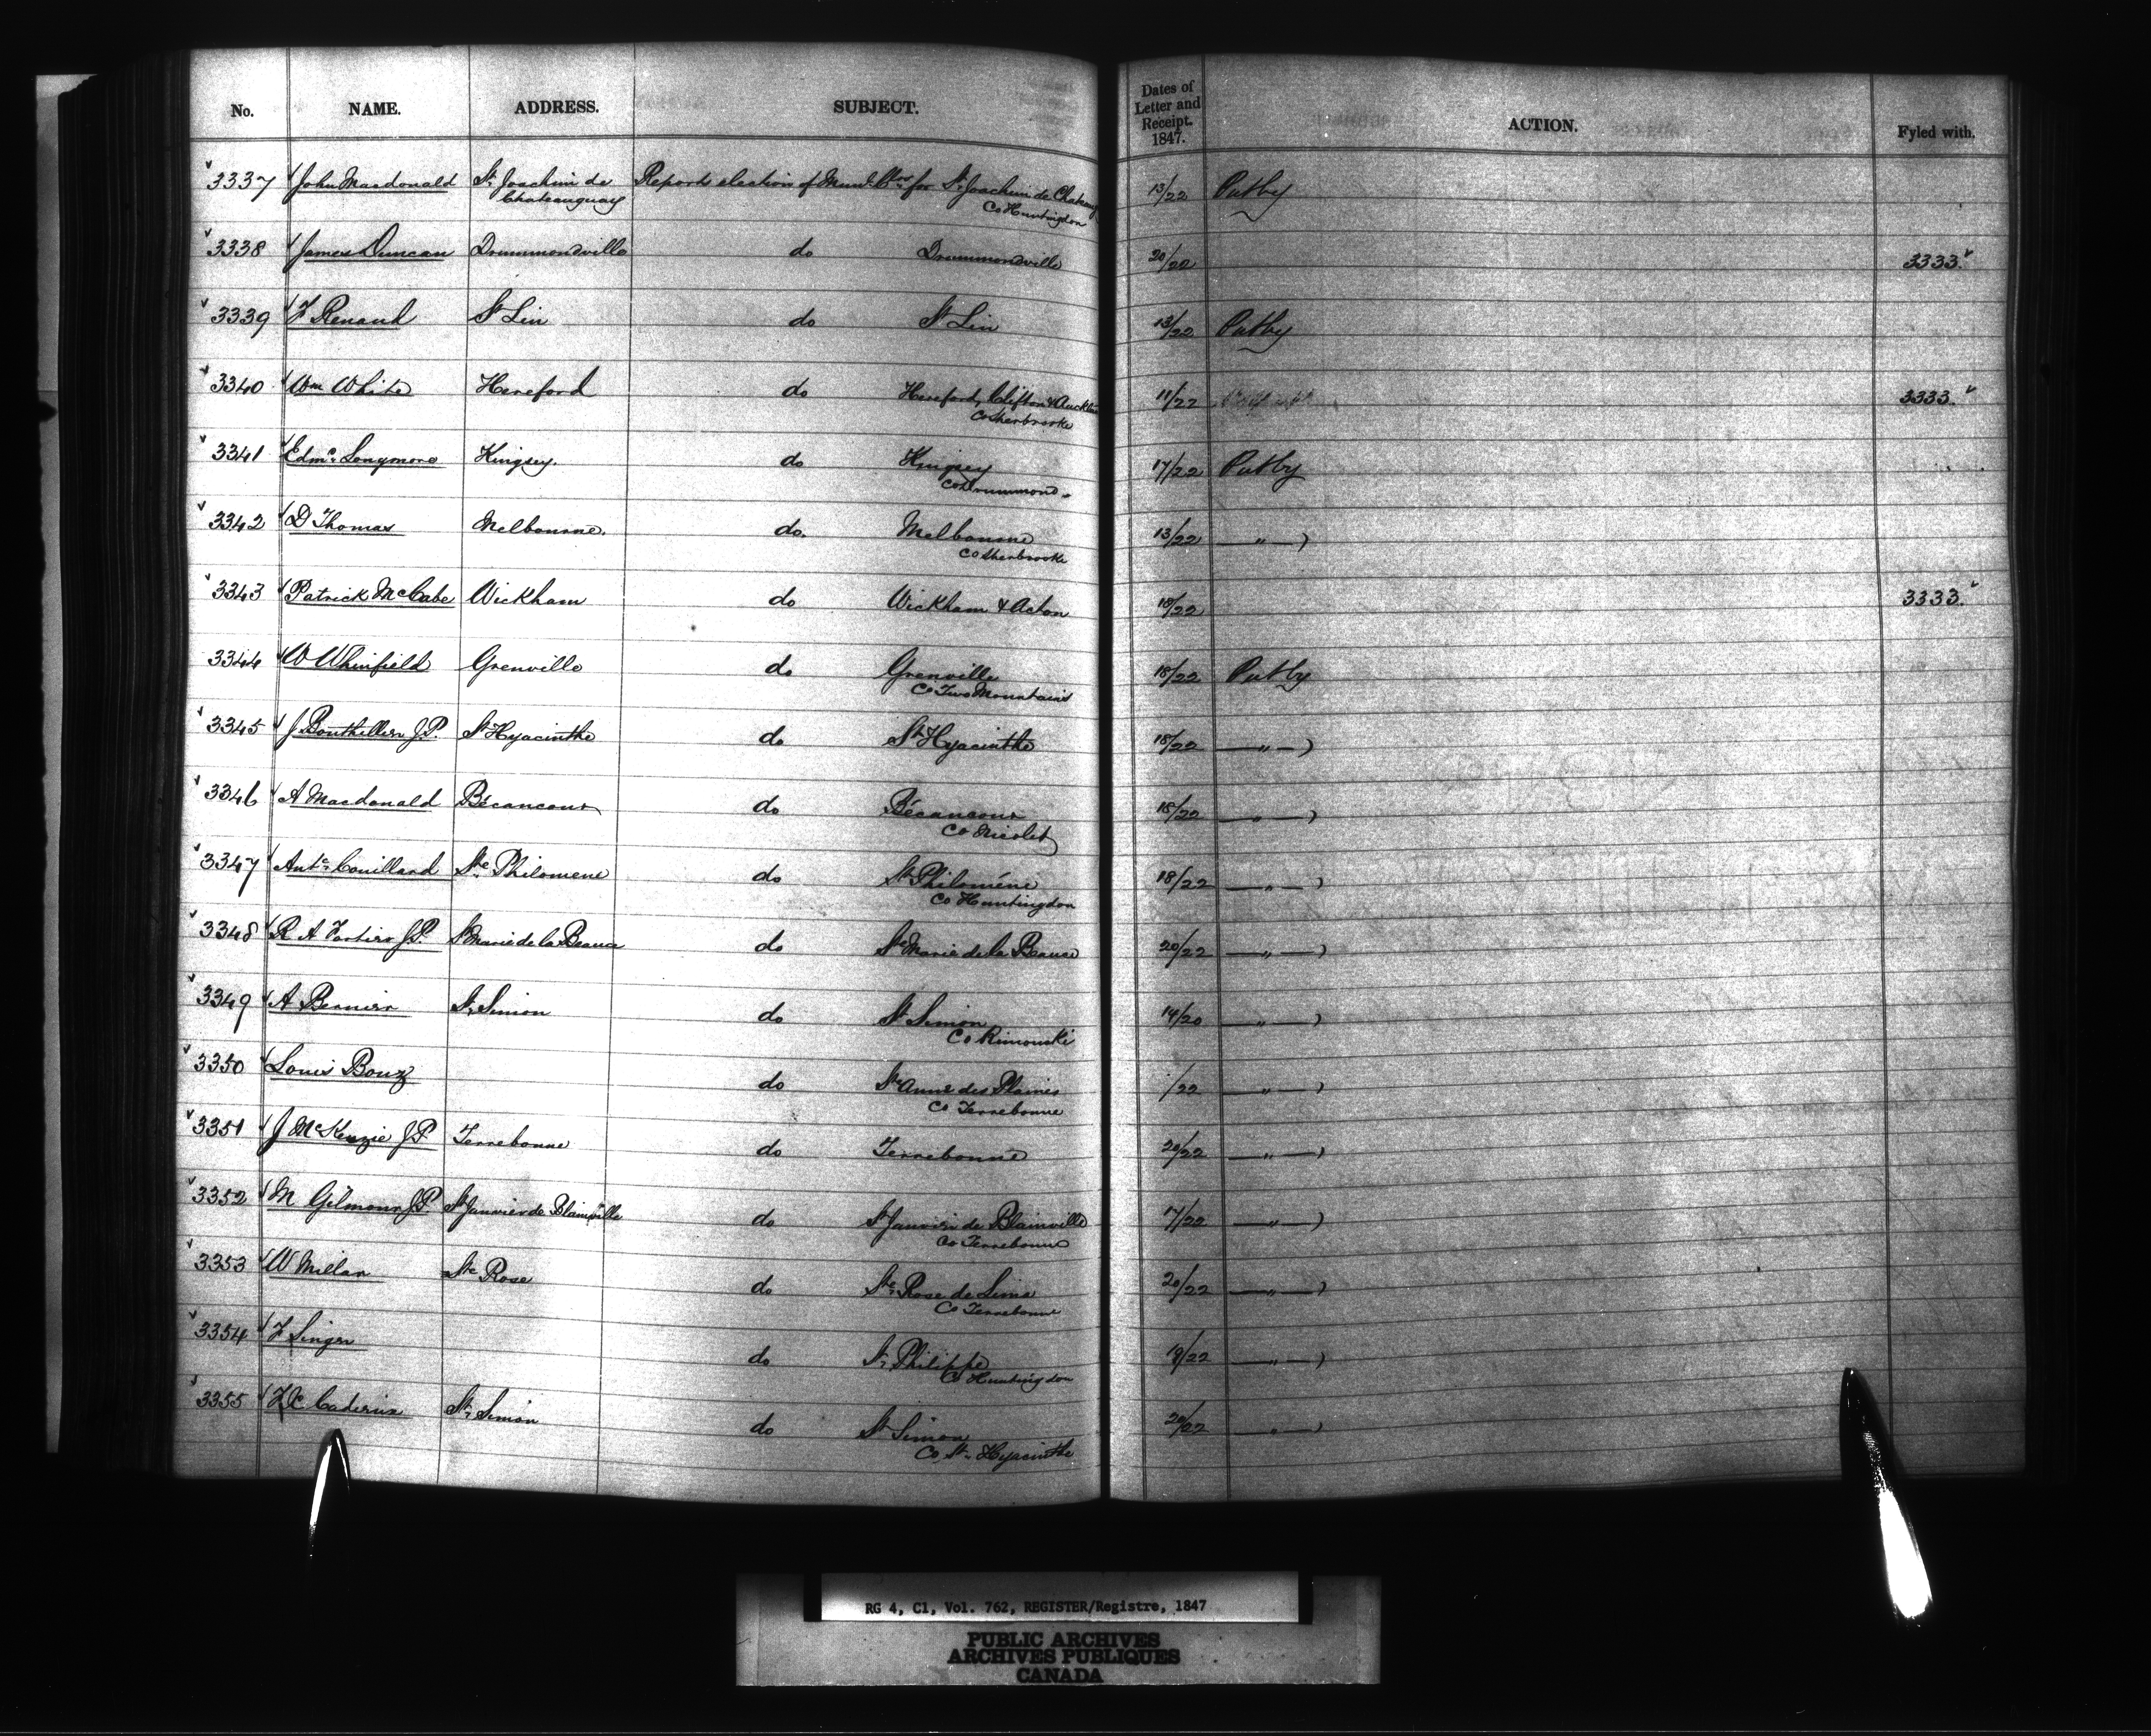 No. NAME. ADDRESS. SUBJECT. Dates of Letter and Receipt. 1847. ACTION. Fyled with.
3337 John Macdonald St. Joachim de Chateauguay Reports election of Munl. Cllors. for St. Joachim de Chateaug 13/22 Putby
Co Huntingdon
3338 James Duncan Drummondville do Drummondville 20/22 3333.
3339 F Renaud St Lin do St Lin 13/22 Putby
3340 Wm White Hereford do Hereford, Clifton & Auckland 11/22 3333.
Co Sherbrooke
3341 Edmd. Longmore Kingsey. do Kingsey 17/22 Putby
Co Drummond
3342 D Thomas Melbourne. do. Melbourne 13/22 — " — )
Co Sherbrooke
3343 Patrick McCabe Wickham do Wickham & Acton 18/22 3333.
3344 W Whinfield Grenville do Grenville 18/22 Putby
Co Two Mountains
3345 J Bouthillier J.P. St Hyacinthe do St Hyacinthe 18/22 — " — )
3346 A Macdonald Bécancour do Bécancour 18/22 — " — )
Co Nicolet
3347 Ante. Couillard Ste. Philomene do St. Philoméne 18/22 — " — )
Co Huntingdon
3348 R A Fortier J.P. St Marie de la Beauce do Ste Marie de la Beauce 20/22 — " — )
3349 A Bernier St. Simon do St Simon 14/20 — " — )
Co Rimouski
3350 Louis Bouz do Ste Anne des Plaines /22 " — )
Co Terrebonne
3351 J McKenzie J.P. Terrebonne do Terrebonne 20/22 — " — )
3352 M Gilmour J.P. St Janvier de Blainville do St Janvier de Blainville 17/22 — " — )
Co Terrebonne
3353 W Millar Ste Rose do Ste. Rose de Lima 20/22 — " — )
Co Terrebonne
3354 F Singer do St. Philippe 19/22 — " — )
Co Huntingdon
3355 St. Simon do St Simon 20/22 — " — )
Co St. Hyacinthe
RG 4, C1, Vol. 762, REGISTER/Registre, 1847
PUBLIC ARCHIVES
ARCHIVES PUBLIQUES
CANADA